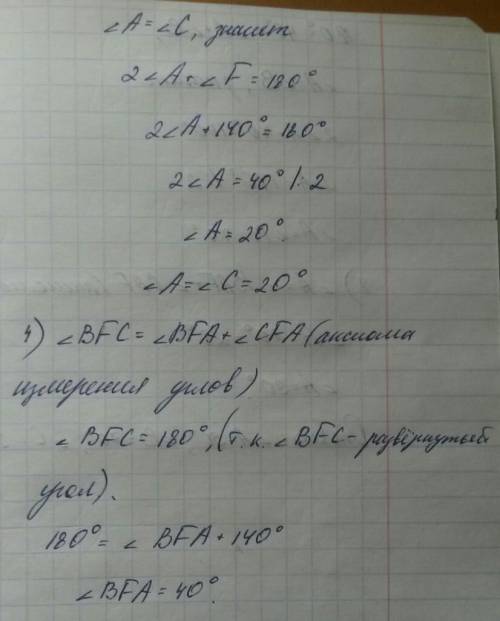 ∠A = ∠C, значит
2∠A + ∠F = 180°
2∠A + 140° = 180°
2∠A = 40° |: 2
∠A = 20°
∠A = ∠C = 20°
4) ∠BFC = ∠BFA + ∠CFA (аксиома
измерения углов)
∠BFC = 180°, (т.к. ∠BFC - развёрнутый
угол).
180° = ∠BFA + 140°
∠BFA = 40°.